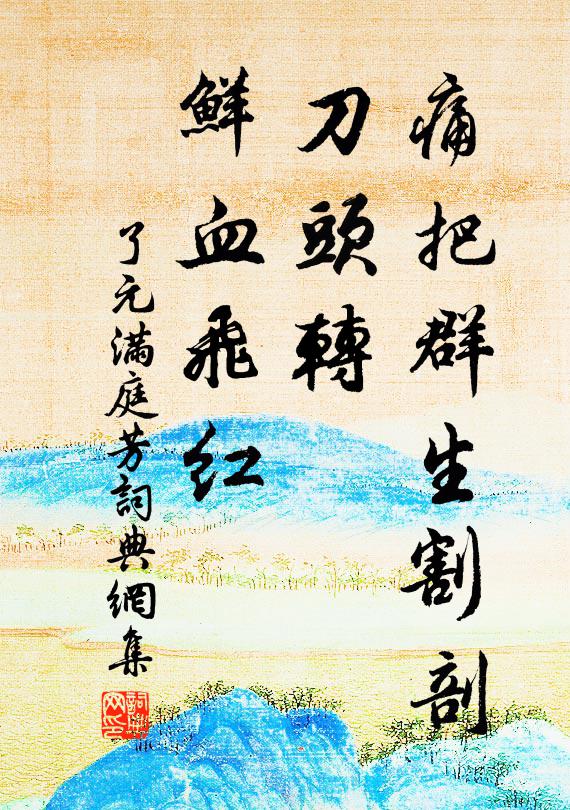 痛把群生割剖
刀頭轉
鮮血飛紅
了元滿庭芳詞典網集